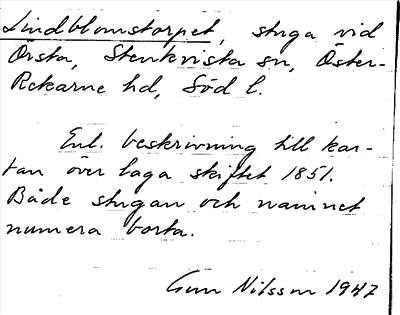 Lindblomstorpet, stuga vid
Örsta, Stenkvista sn, Öster-
Rekarne hd, Söd l.
Enl. beskrivning till kar-
tan över laga skiftet 1851.
Både stugan och namnet
numera borta.
Gun Nilsson 1947